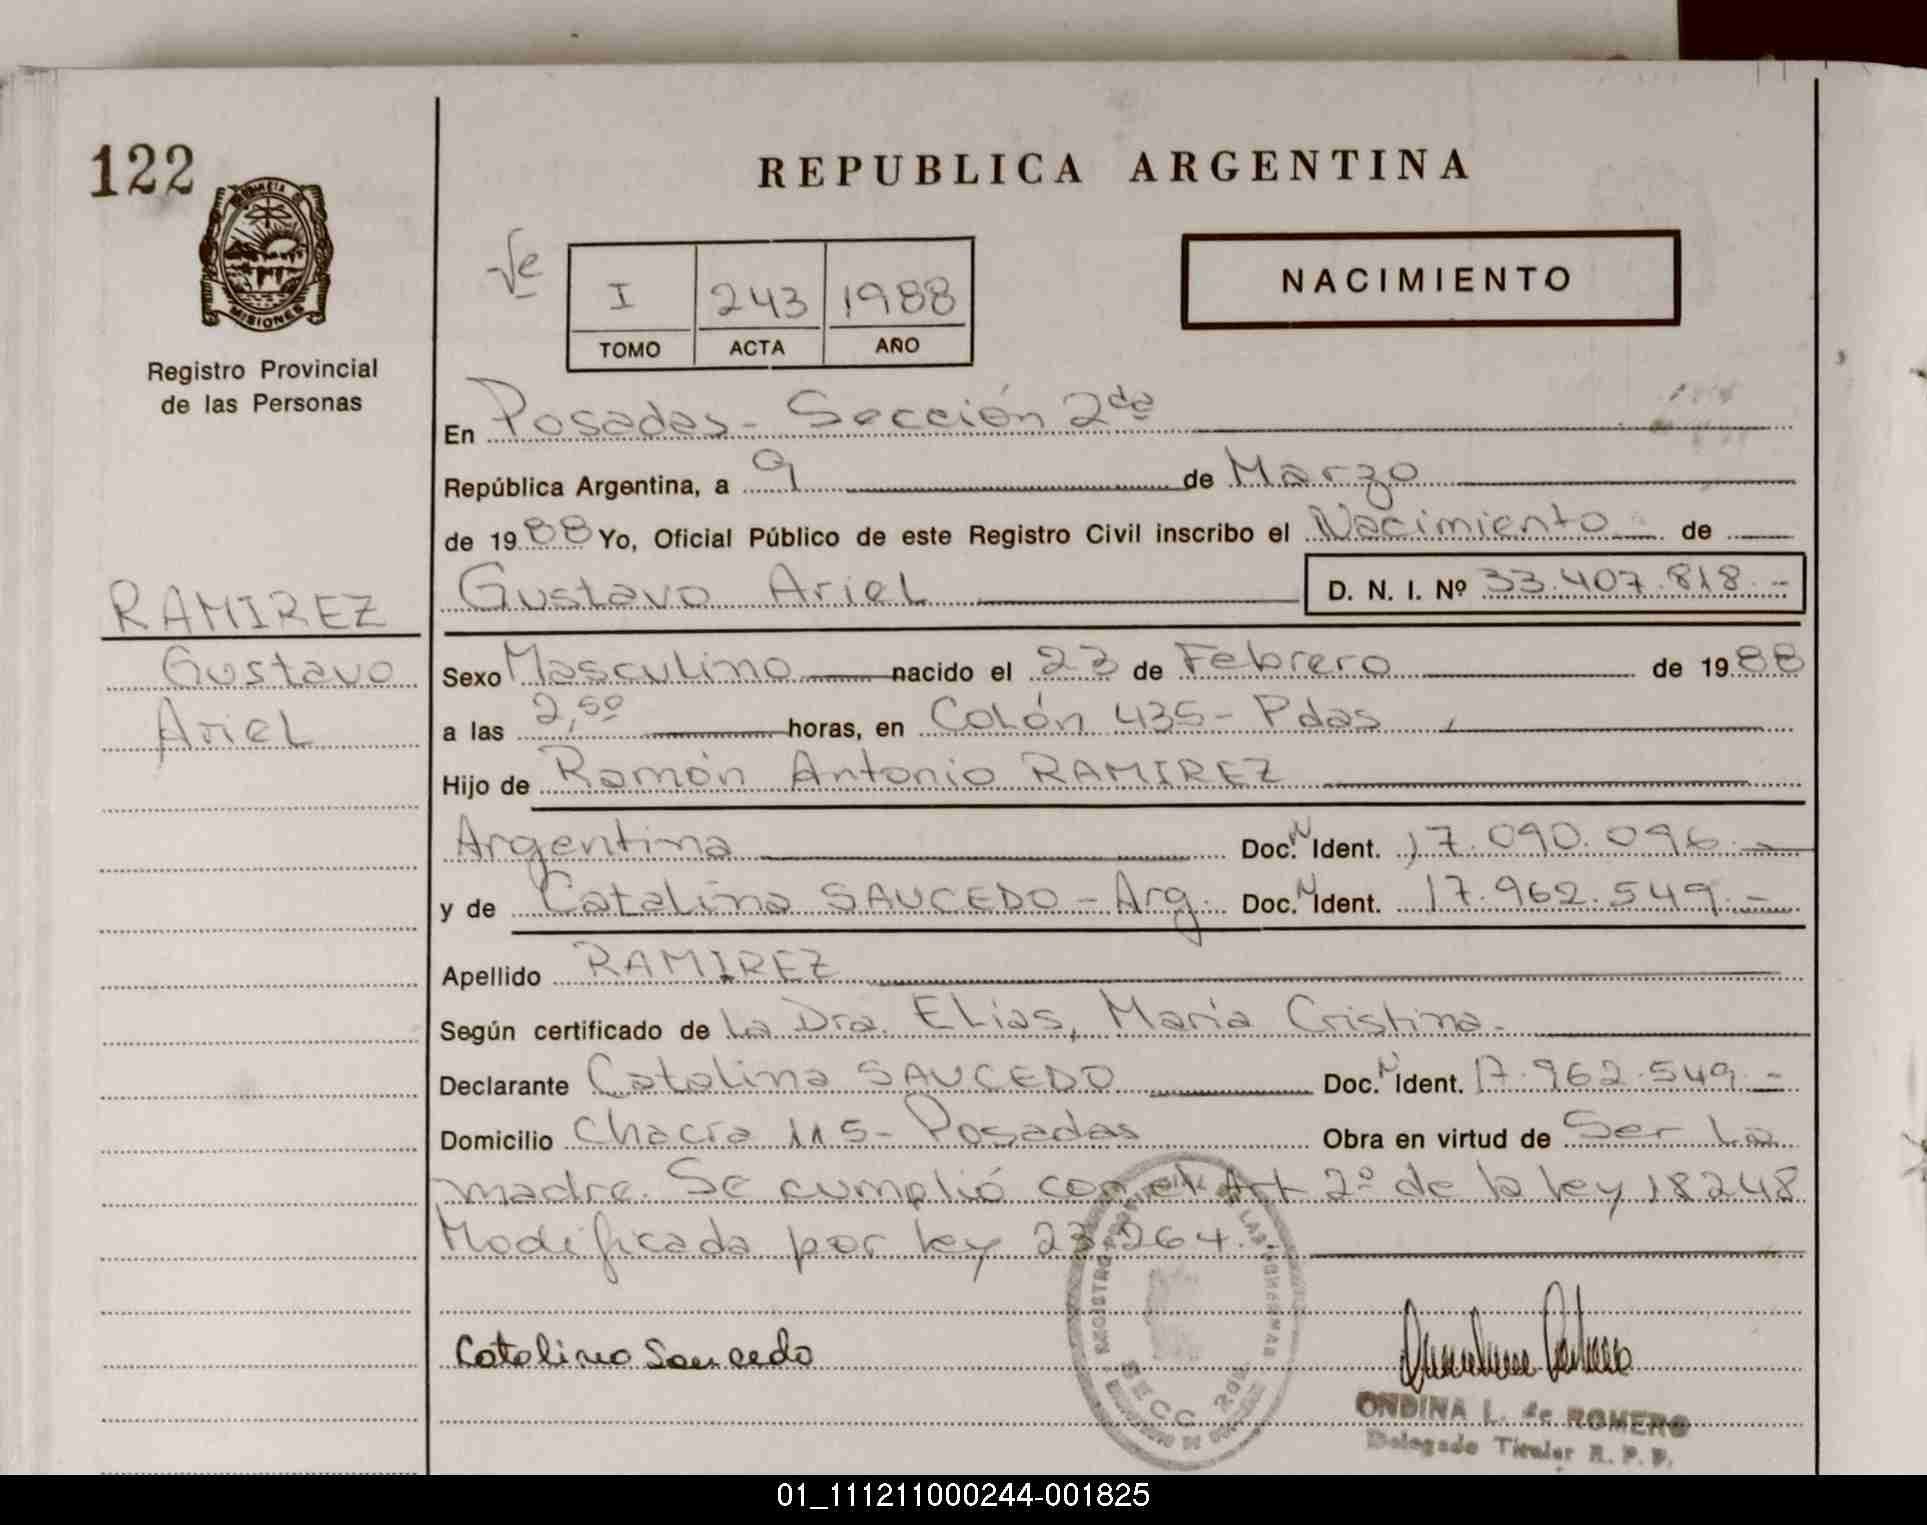 122
REPUBLICA ARGENTINA
MISIONES
Registro Provincial
de las Personas
I 243 1988
TOMO ACTA AÑO
NACIMIENTO
En Posadas - Sección 2da
República Argentina, a 9 de Marzo
de 1988 Yo, Oficial Público de este Registro Civil inscribo el Nacimiento de
Gustavo Ariel D. N. I. Nº 33.407.818.-
RAMIREZ
Gustavo
Ariel
Sexo Masculino nacido el 23 de Febrero de 1988
a las 2,50 horas, en Colón 435- Pdas
Hijo de Ramón Antonio RAMIREZ
Argentina Doc. N Ident. 17.090.096.-
y de Catalina SAUCEDO - Arg. Doc. N Ident. 17.962.549.-
Apellido RAMIREZ
Según certificado de la Dra. Elias, María Cristina.
Declarante Catalina SAUCEDO Doc. N Ident. 17.962.549.-
Domicilio Chacra 115- Posadas Obra en virtud de Ser La
madre. Se cumplió con el Art 2º de la ley 18248
Modificada por ley 23.264.
Catalina Saucedo
SECC 2DA
ONDINA L. de ROMERO
Delegado Titular R. P. P.
01_111211000244-001825